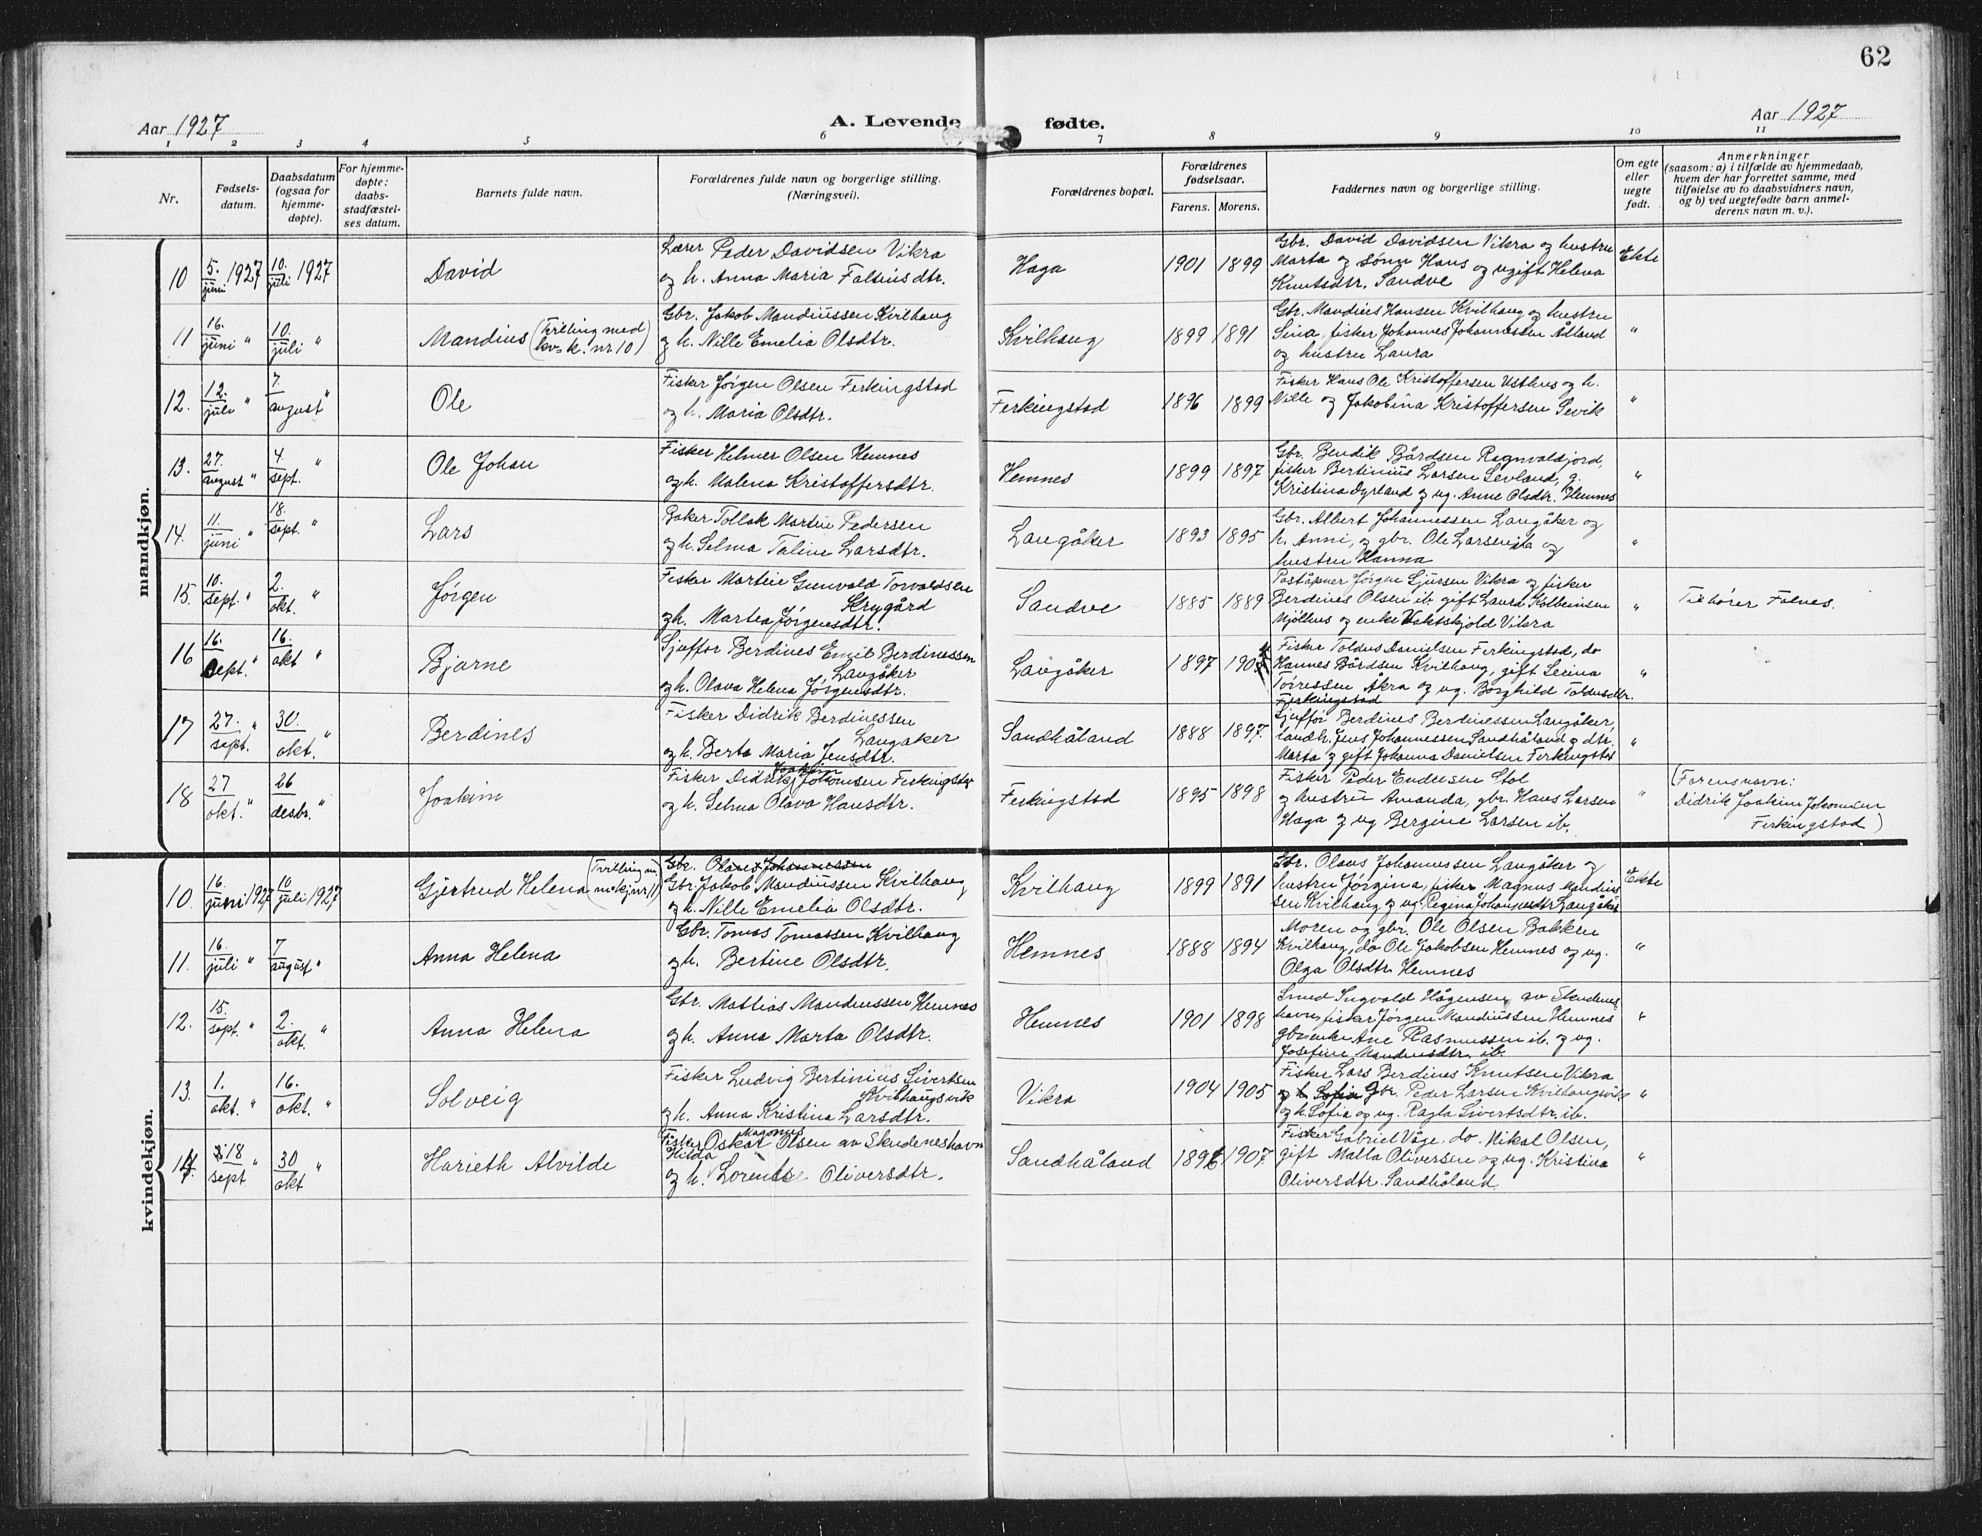 62
Aar 1927
A. Levende fødte.
Aar 1927
1 2 3 4 5 6 7 8 9 10 11
Nr.
Fødsels-
datum.
Daabsdatum
(ogsaa for
hjemme-
døpte).
For hjemme-
døpte:
daabs-
stadfæstel-
ses datum.
Barnets fulde navn.
Forældrenes fulde navn og borgerlige stilling.
(Næringsvei).
Forældrenes bopæl.
Forældrenes
fødselsaar.
Farens. Morens.
Faddernes navn og borgerlige stilling.
Om egte
eller
uegte
født.
Anmerkninger
(saasom: a) i tilfælde av hjemmedaab,
hvem der har forrettet samme, med
tilføielse av to daabsvidners navn,
og b) ved uegtefødte barn anmel-
derens navn m. v.).
mandkjøn.
10 5. juni 1927 10. juli 1927 David
Lærer Peder Davidsen Vikra
og h. Anna Maria Falniusdtr.
Haga 1901 1899
Gbr. David Davidsen Vikra og hustru
Marta og sønn Hans og ugift Helena
Knutsdtr. Sandve
Ekte
11 16. juni " 10. juli " Mandius (Tvilling med
kvk. nr 10)
Gbr. Jakob Mandiussen Kvilhaug
og h. Nille Emelia Olsdtr.
Kvilhaug 1899 1891
Gbr. Mandius Hansen Kvilhaug og hustru
Sina, fisker Johannes Johannessen Åland
og hustru Laura
"
12. 12. juli " 7. august " Ole
Fisker Jørgen Olsen Ferkingstad
og h. Maria Olsdtr.
Ferkingstad 1896 1899
Fisker Hans Ole Kristoffersen Usthus og h.
Nille og Jakobina Kristoffersen Sevik
"
13. 27. august " 4. sept. " Ole Johan
Fisker Helmer Olsen Hemnes
og h. Malena Kristoffersdtr.
Hemnes 1899 1897
Gbr. Bendik Bårdsen Ragnvaldsjord,
fisker Bertinius Larsen Sevland, g.
Kristina Dyrland og ug. Anne Olsdtr. Hemnes
"
14. 11. juni " 18. sept. " Lars
Baker Tollak Martin Pedersen
og h. Selma Taline Larsdtr.
Langåker 1893 1895
Gbr. Albert Johannessen Langåker og
h. Anni, og gbr. Ole Larsen ib og
hustru Hanna
"
15. 10. sept. " 2. okt. " Jørgen
Fisker Martin Gunvald Torvaldsen
Krygård
og h. Martea Jørgensdtr.
Sandve 1885 1889
Poståpner Jørgen Sjursen Vikra og fisker
Berdines Olsen ib. gift Laura Kolbeinsen
Mjølhus og enke Vaktskjold Vikra
"
Tilhører Falnes.
16 16. sept. " 16. okt " Bjarne
Sjaffør Berdines Emil Berdinessen
Langåker
og h. Olava Helena Jørgensdtr.
Langåker 1897
Fisker Toldus Danielsen Ferkingstad, do
Hannes Bårdsen Kvilhaug, gift Severina
Torressen Åkra og ug. Borghild Toldusdtr.
Ferkingstad
"
17 27. sept. " 30. okt. " Berdines
Fisker Didrik Berdinessen
Langaker
og h. Berta Maria Jensdtr.
Sandhåland 1888 1897.
Sjaffør Berdines Berdinessen Langåker,
landh. Jens Johannessen Sandhåland og dtr
Marta og gift Johanna Danielsen Ferkingstad
"
18 27 okt. " 26 desbr. " Joakim
Joakim
Fisker Didrik Johansen Ferkingstad
og h. Selma Olava Hansdtr.
Ferkingstad 1895 1898
Fisker Peder Endresen Stol
og hustru Amanda, gbr. Hans Larsen
Haga og ug Bergine Larsen ib.
"
(Farens navn:
Didrik Joakim Johansen
Ferkingstad)
kvindekjøn.
10. 16. juni 1927 10 juli 1927 Gjertrud Helena (Tvilling m.
m.kj nr. 11)
Gbr. Olaus Johannessen
Gbr. Jakob Mandiussen Kvilhaug
og h. Nille Emelia Olsdtr.
Kvilhaug 1899 1891
Gbr. Olaus Johannessen Langåker og
hustru Jørgina, fisker Magnus Mandius
sen Kvilhaug og ug. Regina Johannesdtr Langåker
Ekte
11. 16. juli " 7 august " Anna Helena
Gbr. Tomas Tomassen Kvilhaug
og h. Bertine Olsdtr.
Hemnes 1888 1894
Moren og gbr. Ole Olsen Bakken
Kvilhaug, do Ole Jakobsen Hemnes og ug.
Olga Olsdtr. Hemnes
"
12. 15. sept. " 2. okt. " Anna Helena
Gbr. Mattias Mandiussen Hemnes
og h. Anna Marta Olsdtr.
Hemnes 1901 1898
Smed Ingvald Hågensen av Skudenes-
havn, fisker Jørgen Mandiussen Hemnes
gbr enke Ane Rasmussen ib. og ug.
Josefine Mandiusdtr. ib.
"
13. 1. okt. " 16. okt. " Solveig
Fisker Ludvig Bertinius Sivertsen
Kvilhaugsvik
og h. Anna Kristina Larsdtr.
Vikra 1904 1905
Fisker Lars Berdines Knutsen Vikra
og h Sofia Gbr. Peder Larsen Kvilhaugsvik
og h. Sofia og ug. Ragla Sivertsdtr. ib.
"
14. 18 sept " 30 okt " Harieth Alvilde
Magnus
Fisker Oskar Olsen av Skudeneshavn
Hilda
og h. Lorentse Oliversdtr.
Sandhåland 1907
Fisker Gabriel Våge, do. Nikal Olsen,
gift Malla Oliversen og ug. Kristina
Oliversdtr. Sandhåland
"